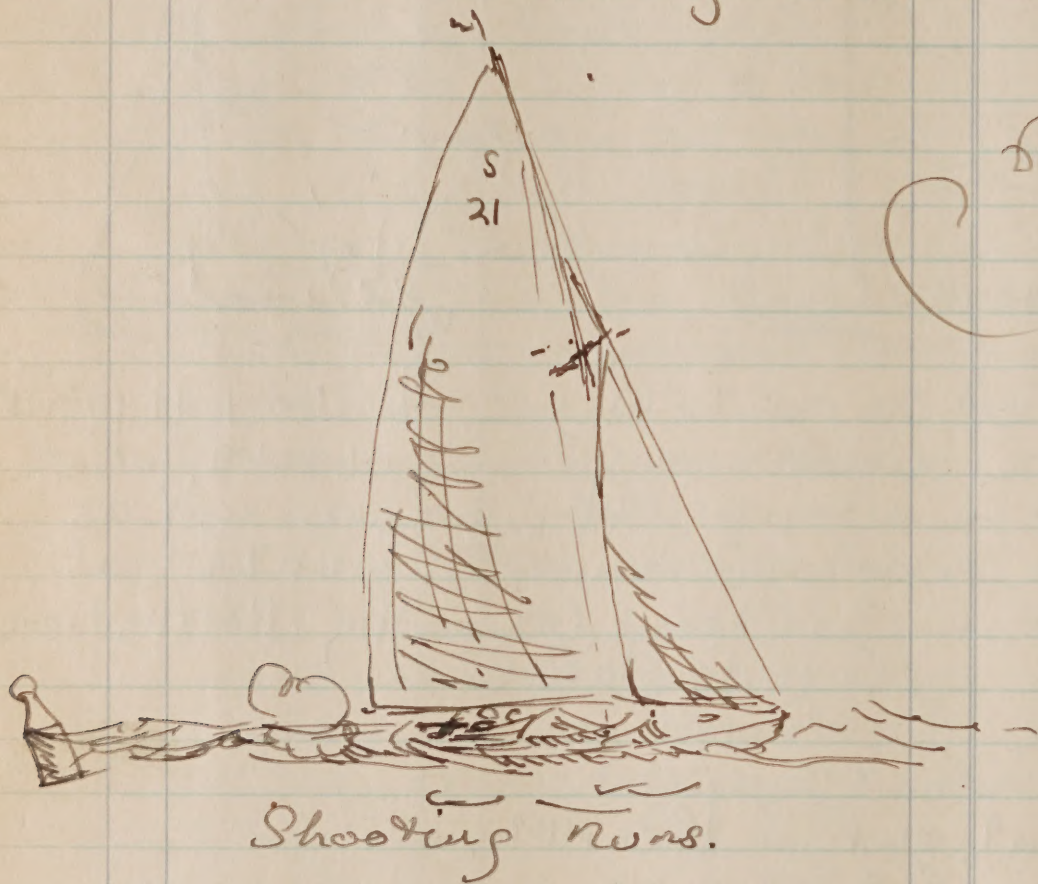 S
21
Shooting Nuns.